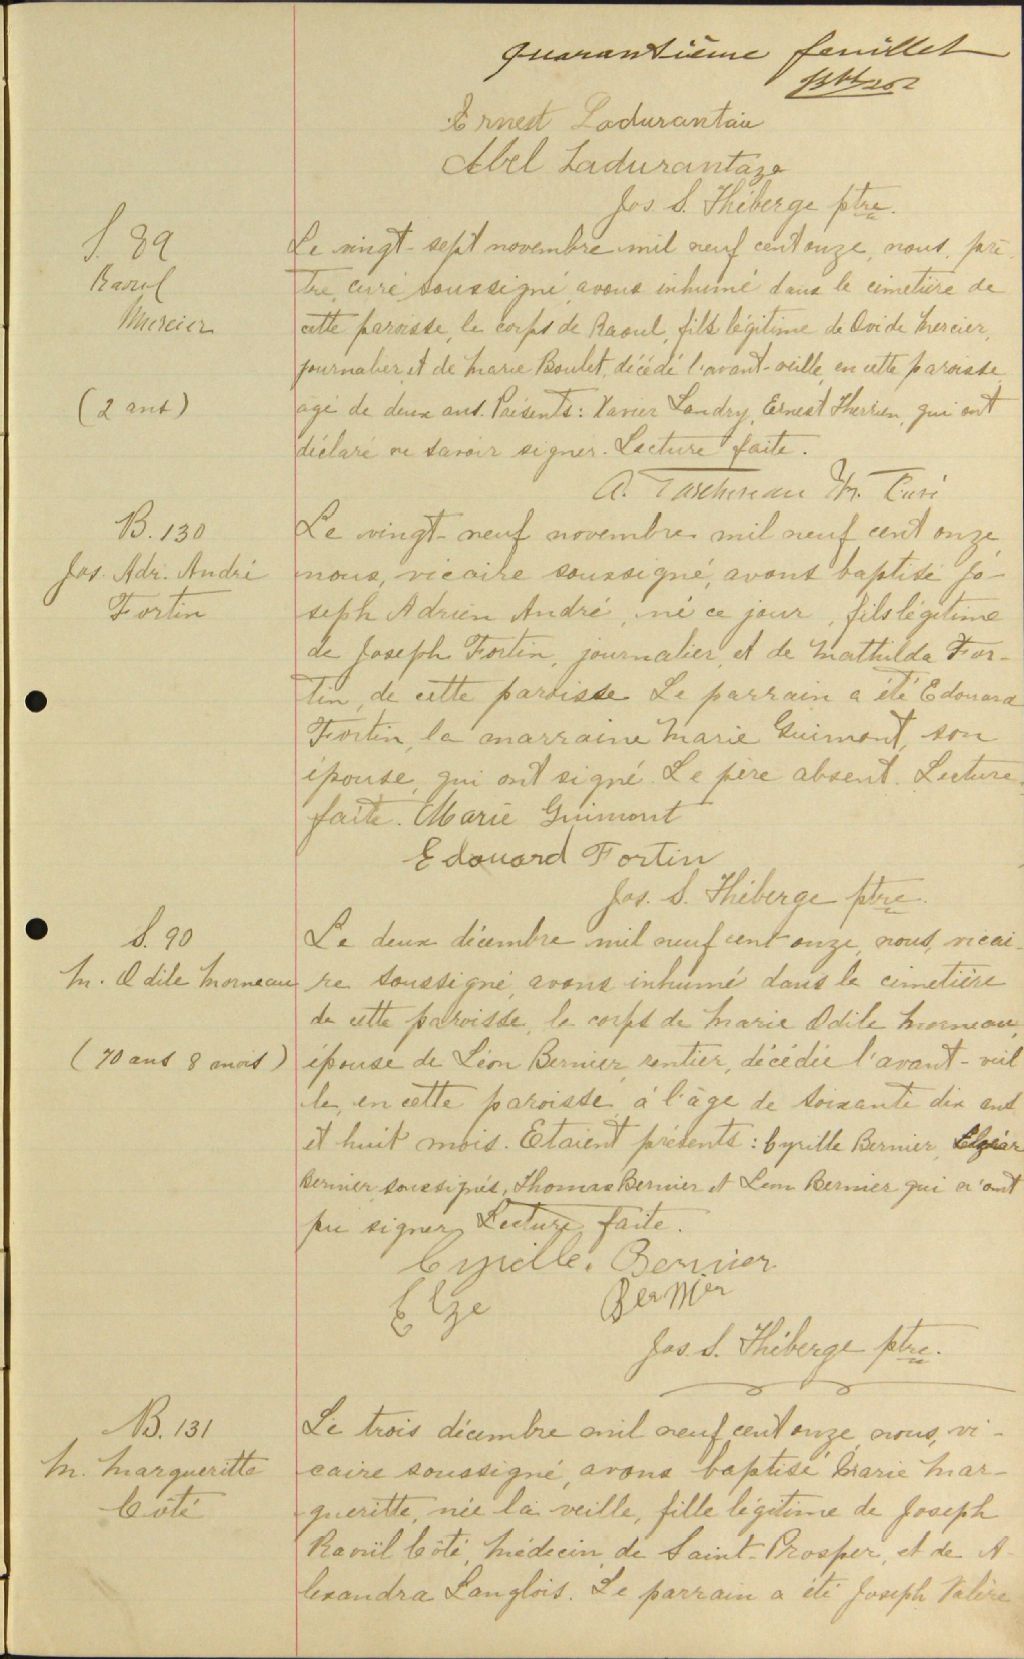 quarantième feuillet
Ernest Ladurantaie
Abel Ladurantaye
Jos. S. Théberge ptre.
S. 89
Raoul
Mercier
(2 ans)
Le vingt-sept novembre mil neuf cent onze, nous, prê-
tre, curé soussigné, avons inhumé dans le cimetière de
cette paroisse, le corps de Raoul, fils légitime de Ovide Mercier,
journalier, et de Marie Boulet, décédé l'avant-veille, en cette paroisse,
agé de deux ans. Présents: Xavier Landry, Ernest Therrien, qui ont
déclaré ne savoir signer. Lecture faite.
A. Taschereau Ptr. Curé
B. 130
Jos. Adr. André
Fortin
Le vingt-neuf novembre mil neuf cent onze
nous, vicaire soussigné, avons baptisé Jo-
seph Adrien André, né ce jour, fils légitime
de Joseph Fortin, journalier, et de Mathilda For-
tin, de cette paroisse. Le parrain a été Edouard
Fortin, la marraine Marie Guimont, son
épouse, qui ont signé. Le père absent. Lecture
faite. Marie Guimont
Edouard Fortin
Jos. S. Théberge ptre.
S. 90
M. Odile Morneau
(70 ans 8 mois)
Le deux décembre mil neuf cent onze, nous, vicai-
re soussigné, avons inhumé dans le cimetière
de cette paroisse, le corps de Marie Odile Morneau,
épouse de Léon Bernier, rentier, décédée l'avant-veil
le, en cette paroisse, à l'âge de soixante dix ans
et huit mois. Etaient présents: Cyrille Bernier, Elzéar
Bernier, soussignés, Thomas Bernier et Léon Bernier qui n'ont
pu signer. Lecture faite.
Cyrille. Bernier
Elze Bernier
Jos. S. Théberge ptre.
B. 131
M. Margueritte
Côté
Le trois décembre mil neuf cent onze, nous, vi-
caire soussigné, avons baptisé Marie Mar-
gueritte, née la veille, fille légitime de Joseph
Raoül Côté, Médecin, de Saint-Prosper, et de A-
lexandra Langlois. Le parrain a été Joseph Valère